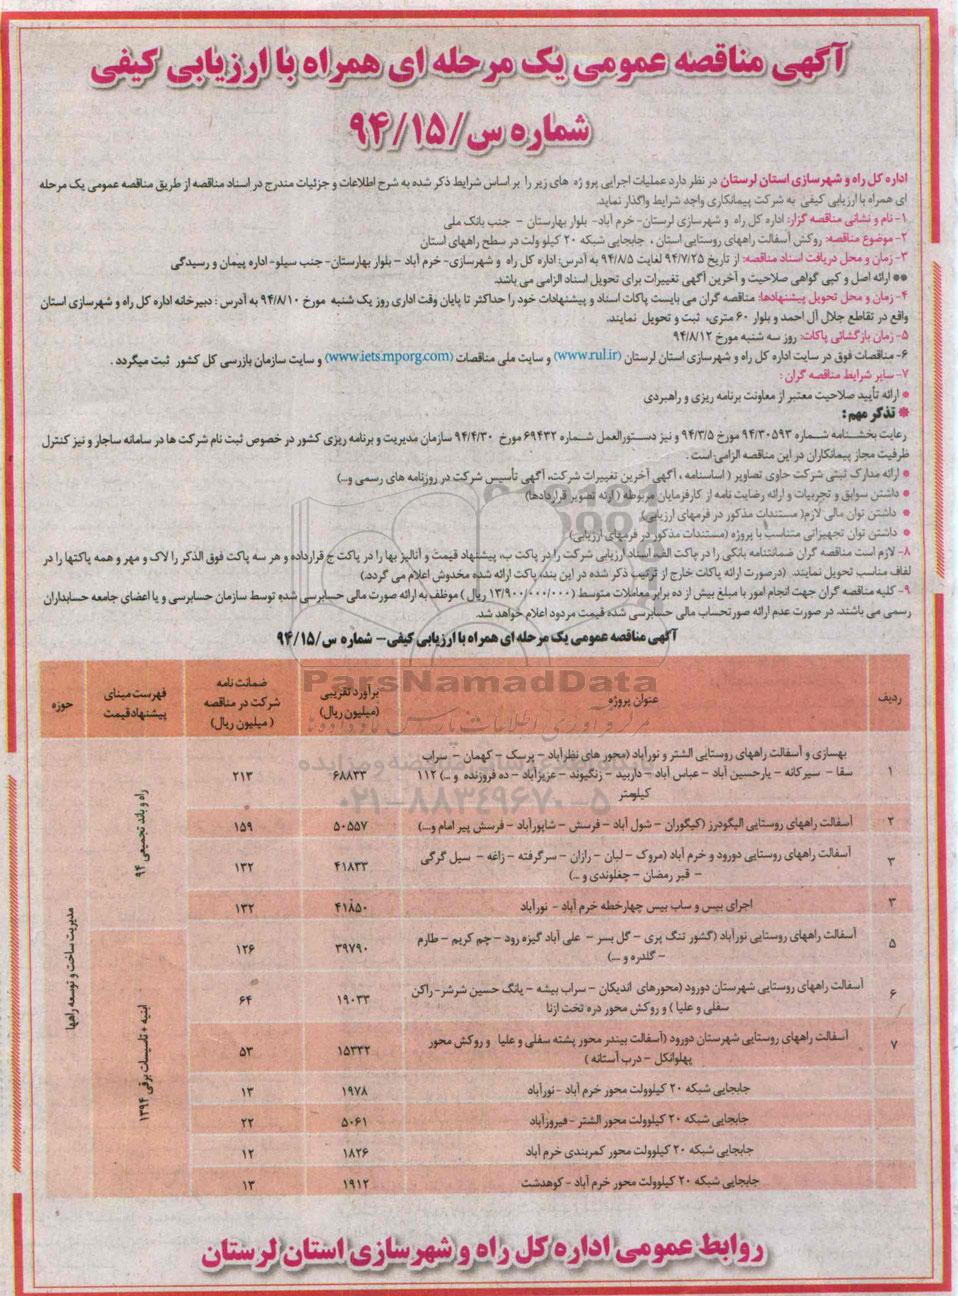 آگهی مناقصه عمومی یک مرحله ای همراه با ارزیابی کیفی
شماره س/۹۴/۱۵
اداره کل راه و شهرسازی استان لرستان در نظر دارد عملیات اجرایی پروژه های زیر را بر اساس شرایط ذکر شده به شرح اطلاعات و جزئیات مندرج در اسناد مناقصه از طریق مناقصه عمومی یک مرحله
ای همراه با ارزیابی کیفی به شرکت پیمانکاری واجد شرایط واگذار نماید.
۱- نام و نشانی مناقصه گزار: اداره کل راه و شهرسازی لرستان- خرم آباد- بلوار بهارستان – جنب بانک ملی
۲- موضوع مناقصه: روکش آسفالت راههای روستایی استان ، جابجایی شبکه ۲۰ کیلو ولت در سطح راههای استان
۳- زمان و محل دریافت اسناد مناقصه: از تاریخ ۹۴/۷/۲۵ لغایت ۹۴/۸/۵ به آدرس: اداره کل راه و شهرسازی- خرم آباد – بلوار بهارستان- جنب سیلو- اداره پیمان و رسیدگی
** ارائه اصل و کپی گواهی صلاحیت و آخرین آگهی تغییرات برای تحویل اسناد الزامی می باشد.
۴- زمان و محل تحویل پیشنهادها: مناقصه گران می بایست پاکات اسناد و پیشنهادات خود را حداکثر تا پایان وقت اداری روز یک شنبه مورخ ۹۴/۸/۱۰ به آدرس : دبیرخانه اداره کل راه و شهرسازی استان
واقع در تقاطع جلال آل احمد و بلوار ۶۰ متری، ثبت و تحویل نمایند.
۵- زمان بازگشائی پاکات: روز سه شنبه مورخ ۹۴/۸/۱۲
۶- مناقصات فوق در سایت اداره کل راه و شهرسازی استان لرستان (www.rul.ir) و سایت ملی مناقصات (www.iets.mporg.com) و سایت سازمان بازرسی کل کشور ثبت میگردد .
۷- سایر شرایط مناقصه گران :
• ارائه تأیید صلاحیت معتبر از معاونت برنامه ریزی و راهبردی
* تذکر مهم :
رعایت بخشنامه شماره ۹۴/۳۰۵۹۳ مورخ ۹۴/۳/۵ و نیز دستورالعمل شماره ۶۹۴۳۲ مورخ ۹۴/۴/۳۰ سازمان مدیریت و برنامه ریزی کشور در خصوص ثبت نام شرکت ها در سامانه ساجار و نیز کنترل
ظرفیت مجاز پیمانکاران در این مناقصه الزامی است .
• ارائه مدارک ثبتی شرکت حاوی تصاویر ( اساسنامه ، آگهی آخرین تغییرات شرکت، آگهی تأسیس شرکت در روزنامه های رسمی و...)
• داشتن سوابق و تجربیات و ارائه رضایت نامه از کارفرمایان مربوطه ( ارئه تصویر قراردادها)
• داشتن توان مالی لازم( مستندات مذکور در فرمهای ارزیابی)
• داشتن توان تجهیزاتی متناسب با پروژه (مستندات مذکور در فرمهای ارزیابی)
۸- لازم است مناقصه گران ضمانتنامه بانکی را در پاکت الف، اسناد ارزیابی شرکت را در پاکت ب، پیشنهاد قیمت و آنالیز بها را در پاکت ج قرارداده و هر سه پاکت فوق الذکر را لاک و مهر و همه پاکتها را در
لفاف مناسب تحویل نمایند. (درصورت ارائه پاکات خارج از ترتیب ذکر شده در این بند، پاکت ارائه شده مخدوش اعلام می گردد.)
۹- کلیه مناقصه گران جهت انجام امور با مبلغ بیش از ده برابر معاملات متوسط (۱۳/۹۰۰/۰۰۰/۰۰۰ ریال ) موظف به ارائه صورت مالی حسابرسی شده توسط سازمان حسابرسی و یا اعضای جامعه حسابداران
رسمی می باشند. در صورت عدم ارائه صورتحساب مالی حسابرسی شده قیمت مردود اعلام خواهد شد.
آگهی مناقصه عمومی یک مرحله ای همراه با ارزیابی کیفی- شماره س/۹۴/۱۵
ParsNamadData
۰۲۱-۸۸۳۴۹۶۷۰-۵
ردیف عنوان پروژه برآورد تقریبی (میلیون ریال) ضمانت نامه شرکت در مناقصه ( میلیون ریال) فهرست مبنای پیشنهاد قیمت حوزه
۱ بهسازی و آسفالت راههای روستایی الشتر و نورآباد (محور های نظرآباد – پرسک – کهمان – سراب
سقا – سیرکانه – یارحسین آباد – عباس آباد – داربید – زنگیوند – عزیزآباد – ده فروزنده و ...) ۱۱۲
کیلومتر ۶۸۸۳۳ ۲۱۳
۲ آسفالت راههای روستایی الیگودرز (کیگوران – شول آباد – فرسش – شاپورآباد – فرسش پیر امام و...) ۵۰۵۵۷ ۱۵۹
۳ آسفالت راههای روستایی دورود و خرم آباد (مروک – لبان – رازان – سرگرفته – زاغه – سیل گرگی
– قبر رمضان – چغلوندی و ...) ۴۱۸۳۳ ۱۳۲
۳ اجرای بیس و ساب بیس چهارخطه خرم آباد - نورآباد ۴۱۸۵۰ ۱۳۲
۵ آسفالت راههای روستایی نورآباد (گشور تنگ پری – گل بسر – علی آباد گیزه رود – چم کریم – طارم
– گلدره و ...) ۳۹۷۹۰ ۱۲۶
۶ آسفالت راههای روستایی شهرستان دورود (محورهای اندیکان – سراب بیشه – پانگ حسین شرشر- راکن
سفلی و علیا ) و روکش محور دره تخت ازنا ۱۹۰۳۳ ۶۴
۷ آسفالت راههای روستایی شهرستان دورود (آسفالت بیندر محور پشته سفلی و علیا و روکش محور
پهلوانکل – درب آستانه ) ۱۵۳۳۲ ۵۳
جابجایی شبکه ۲۰ کیلوولت محور خرم آباد - نورآباد ۱۹۷۸ ۱۳
جابجایی شبکه ۲۰ کیلوولت محور الشتر - فیروزآباد ۵۰۶۱ ۲۲
جابجایی شبکه ۲۰ کیلوولت محور کمربندی خرم آباد ۱۸۲۶ ۱۲
جابجایی شبکه ۲۰ کیلوولت محور خرم آباد - کوهدشت ۱۹۱۲ ۱۳
راه و باند تجمیعی ۹۴
ابنیه + تاسیسات برقی ۱۳۹۴
مدیریت ساخت و توسعه راهها
روابط عمومی اداره کل راه و شهرسازی استان لرستان